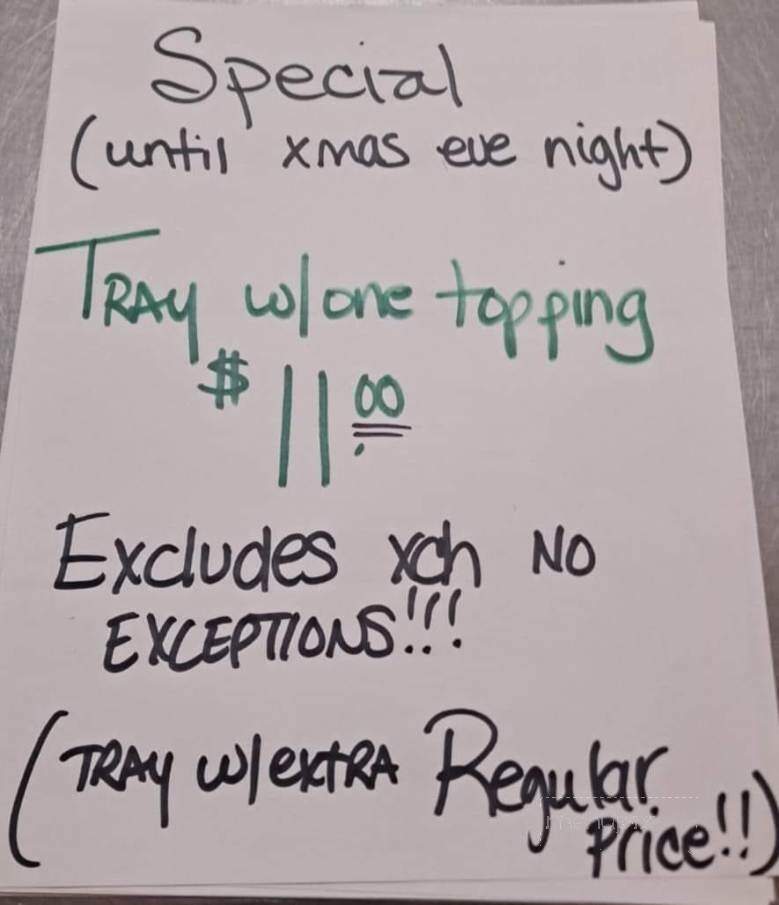 Special
(until xmas eve night)
TRAY w/one topping
$ 11 00
Excludes xch NO
EXCEPTIONS!!!
(TRAY w/extRA Regular
Price!!)